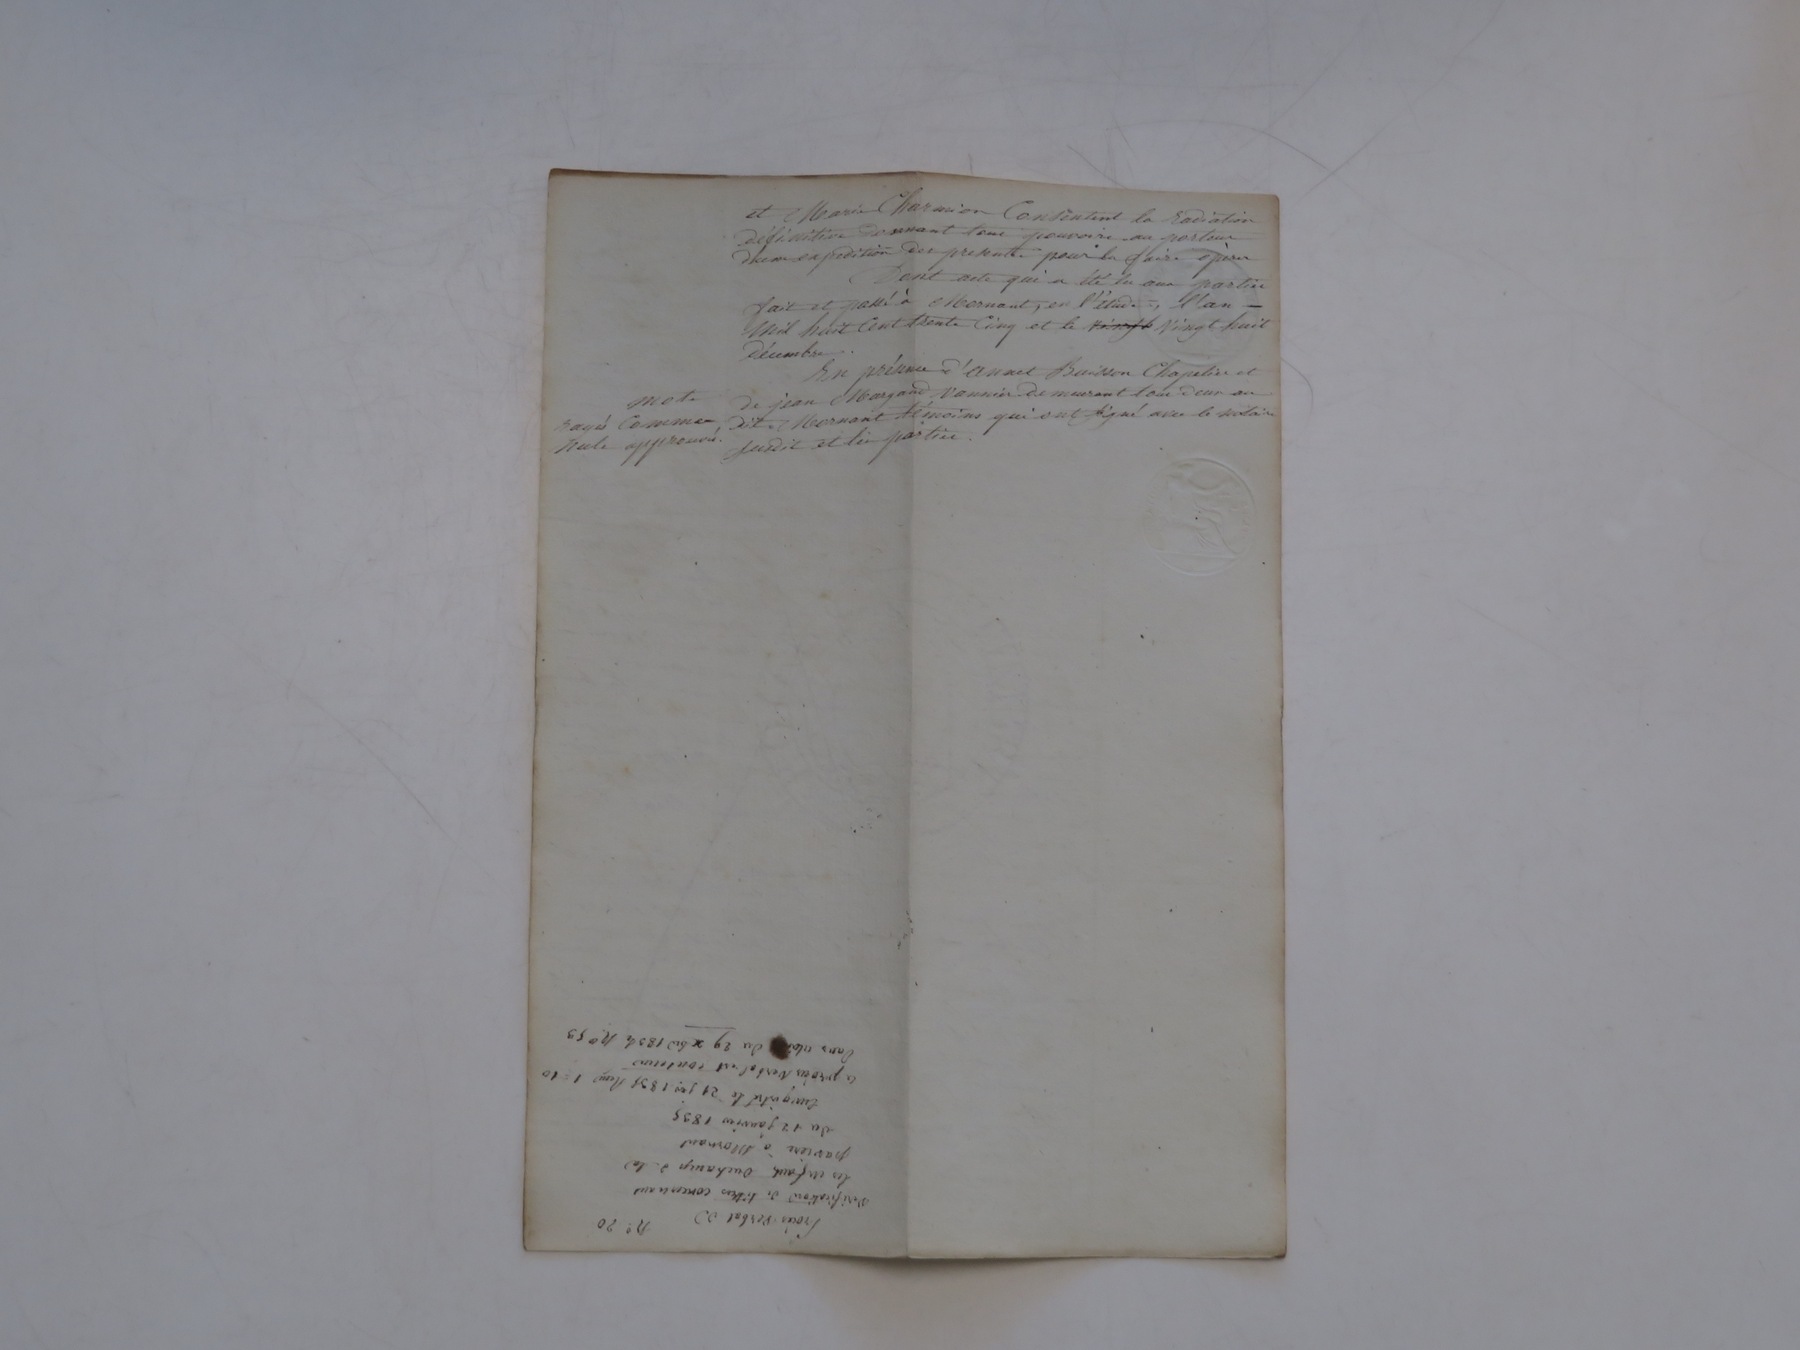 et Marie Charmion Consentent la radiation
définitive donnant tout pouvoir au porteur
d'une expedition des presente pour la faire opérer
Dont acte qui a été lu aux partie
fait et passé à Mornant, en l'étude, l'an
Mil huit Cent trente Cinq et le vingt Vingt huit
décembre.
En présence d' Buisson Chapelier et
mots
de jean Margand Vannier demeurant tous deux au
rayés Comme
dit Mornant témoins qui ont signé avec le notaire
nuls approuvé.
susdit et les partie.
N° 20
Procès Verbal de
Vérification de titres concernant
les enfants Duchamp de la
à Mornant
du 12 janvier 1835
Enregistré le 21 1835
le procès Verbal est contenu
dans du 29 xbre 1834 N° 53